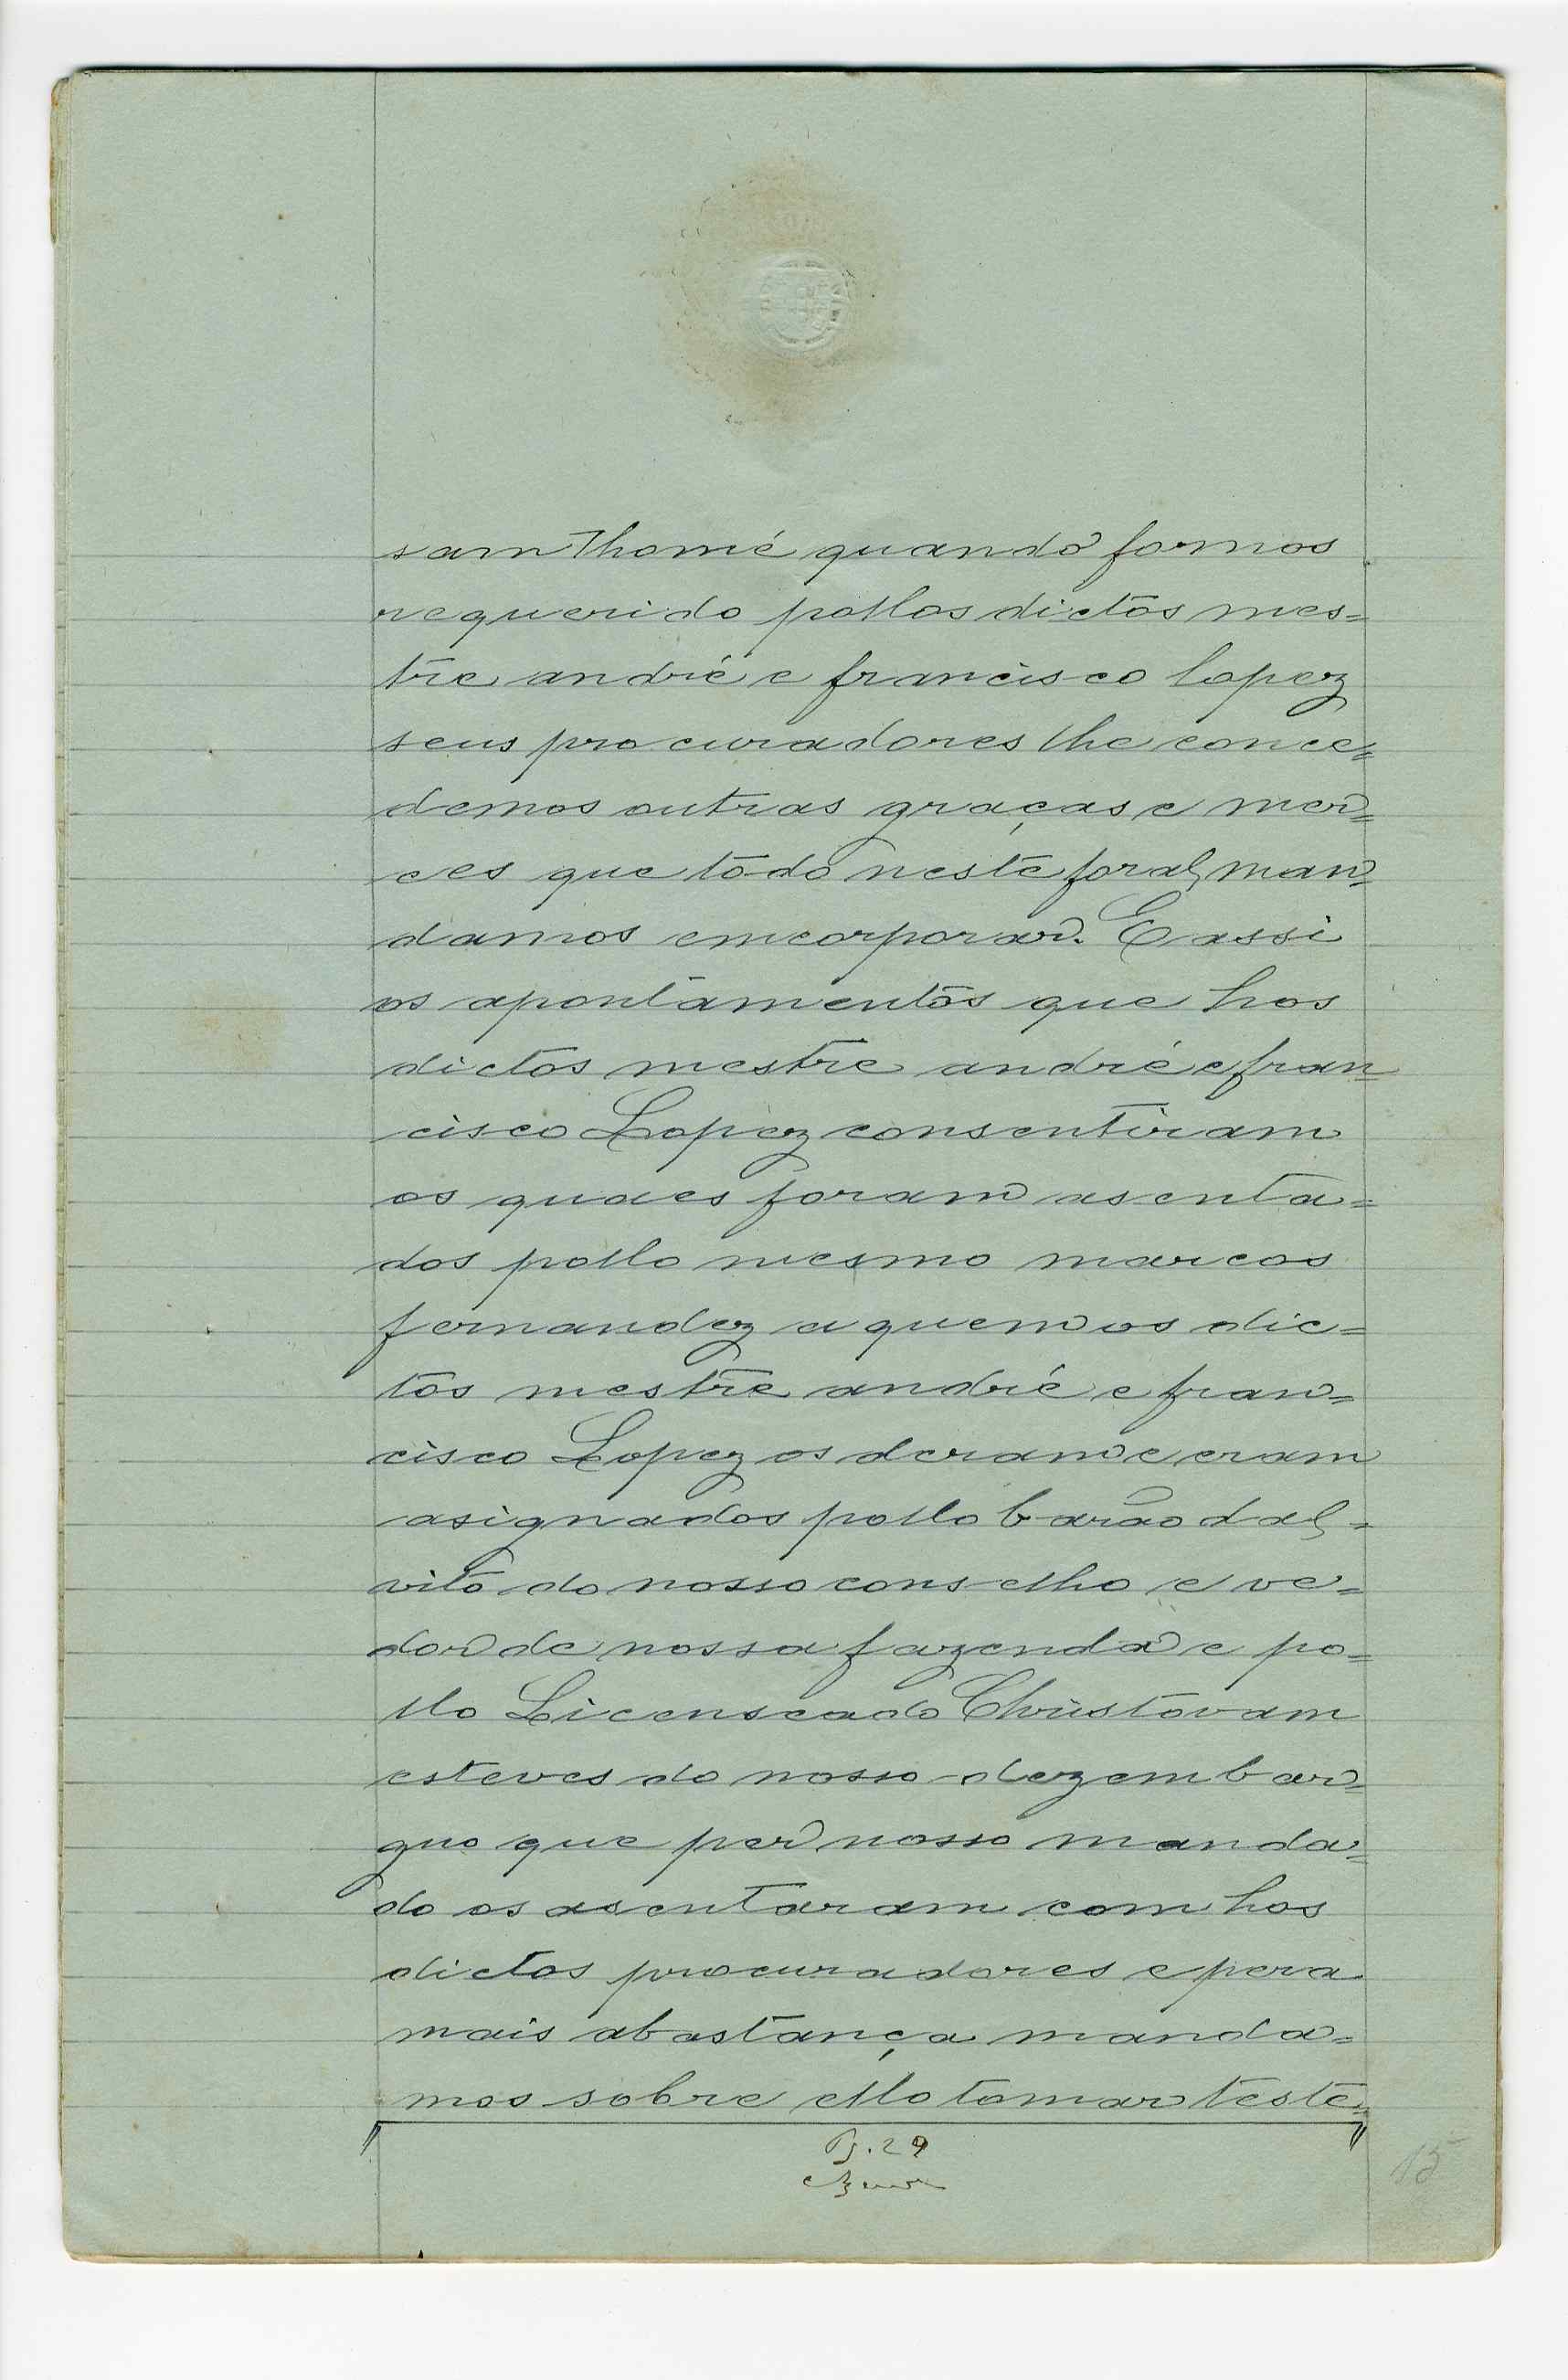 sam Thomé quando fomos
requerido pollos dictos mes=
tre andré e francisco lopez
seus procuradores lhe conce=
demos outras graças e mer=
ces que todo neste foral man=
damos emcorporar. E assi
os apontamentos que hos
dictos mestre andré e fran=
cisco Lopez consentiram
os quaes foram asenta=
dos pollo mesmo marcos
fernandez a quem os dic=
tos mestre andré e fran=
cisco Lopez os deram e eram
asignados pollo barão dal=
vito do nosso conselho e ve=
dor de nossa fazenda e po=
llo Licenseado Christovam
esteves do nosso dezembar=
guo que per nosso manda=
do os asentaram com hos
dictos procuradores e pera
mais abastança manda=
mos sobre ello tomar teste=
Pg. 29
15